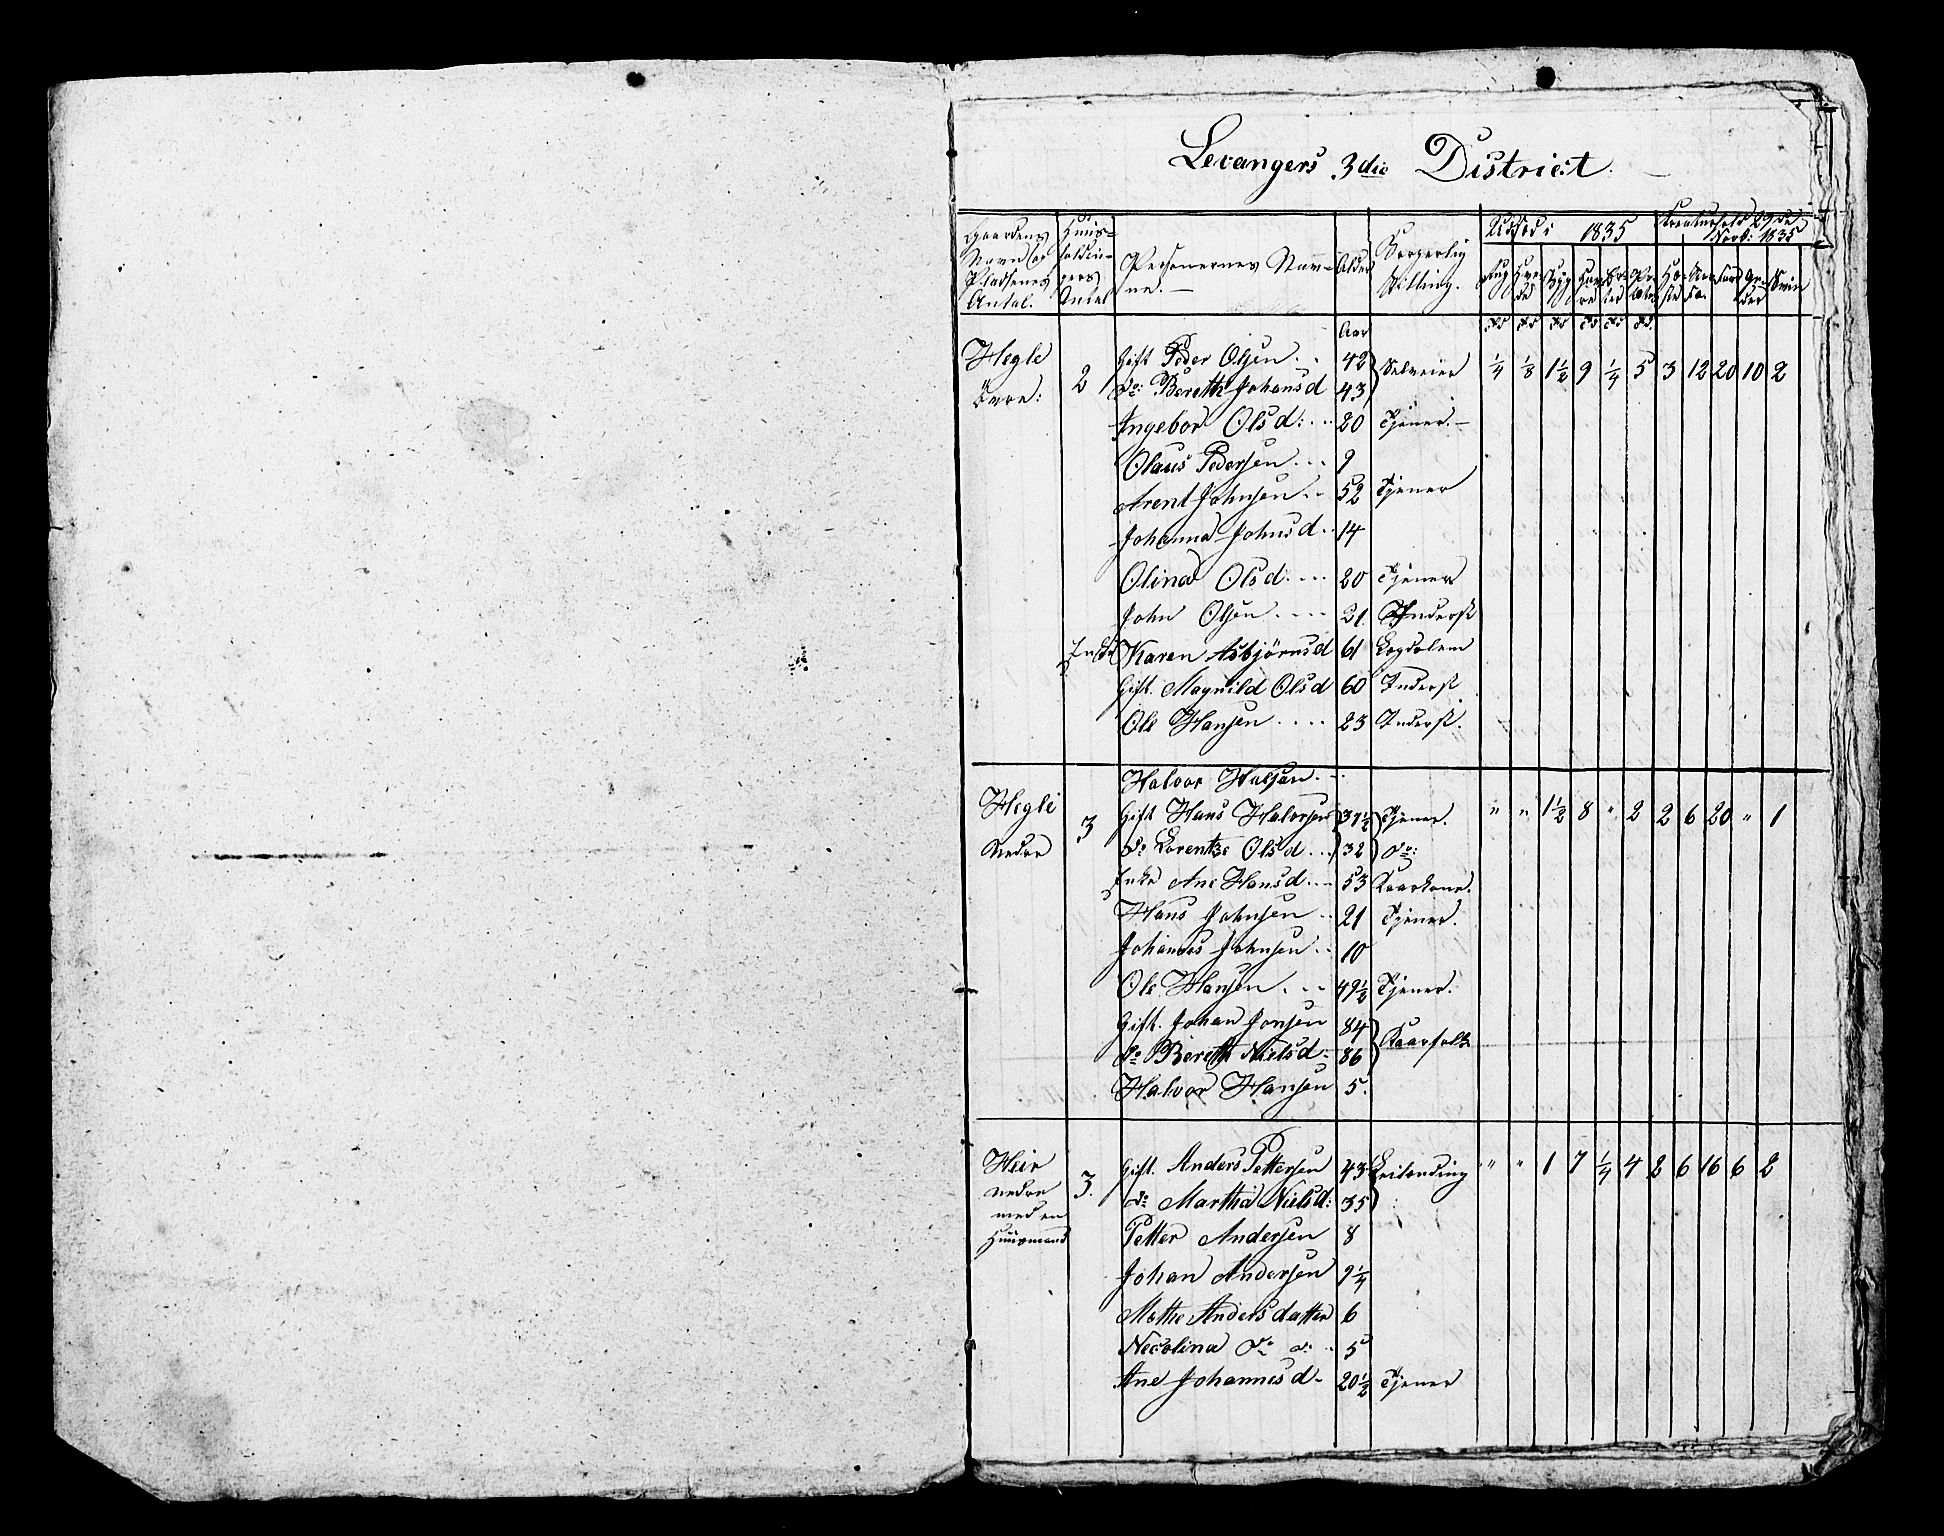 Levangers 3die District.
Gaardens Navn og Pladsenes Antal. Huus-holdin-gers Antal Personernes Nav-ne. Alder Borgerlig Stilling. Udsæd i 1835 Kreaturhold 29de Novb: 1835
Rug Hvede Byg Havre Erter Potetes Heste Stor Fæ. Faar Geder Sviin
Aar
Hegle 2 Gift Peder Olsen 42 Selveier 1/4 1/8 1 1/2 9 1/4 5 3 12 20 10 2
övre: do Bereth Johansd 43
Ingebor Olsd: 20 Tjener.
Olaus Pedersen 9
Arent Johnsen 52 Tjener
Johanna Johnsd. 14
Olina Olsd. 20 Tjener
John Olsen 21 Indersk
Enke Karen Asbjørnsd 61 Lægdslem
Gift. Magnild Olsd 60 Indersk
Ole Hansen 23 Indersk.
Halvor Halsen.
Hegle 3 Gift Hans Halvorsen 37 1/2 Tjener. " " 1 1/2 8 " 2 2 6 20 " 1
Nedre do Lorentze Olsd 32 do:
Enke Ane Hansd. 53 Kaarkone.
Hans Johnsen 21 Tjener.
Johannes Johnsen 10
Ole Hansen 49 1/2 Tjener.
Gift. Johan Jonsen 84 Kaarfolk
do Bereth Nielsd 86
Halvor Hansen 5.
Heir 3. Gift. Anders Pettersen 43 Leilænding " " 1 7 1/4 4 2 6 16 6 2
nedre do Martha Nielsd: 35
med en Petter Andersen 8
Huusmand
Johan Andersen 9 1/4
Methe Andersdatter 6
Necolina do do 5
Ane Johannisd 20 1/2 Tjener